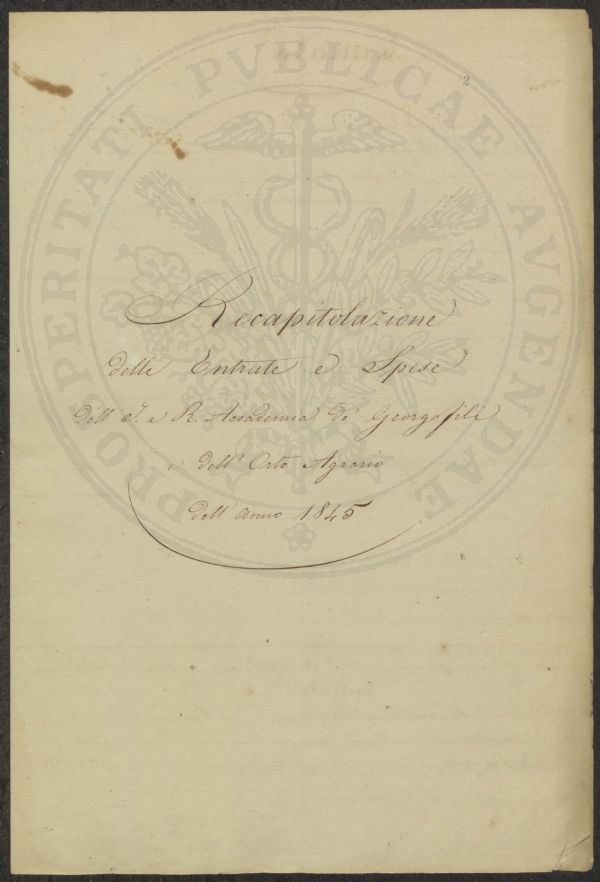 2
PROSPERITATI PVBLICAE AVGENDAE
Recapitolazione
delle Entrate e Spese
dell' I. e R. Accademia de' Georgofili
e dell' Orto Agrario
dell' anno 1845